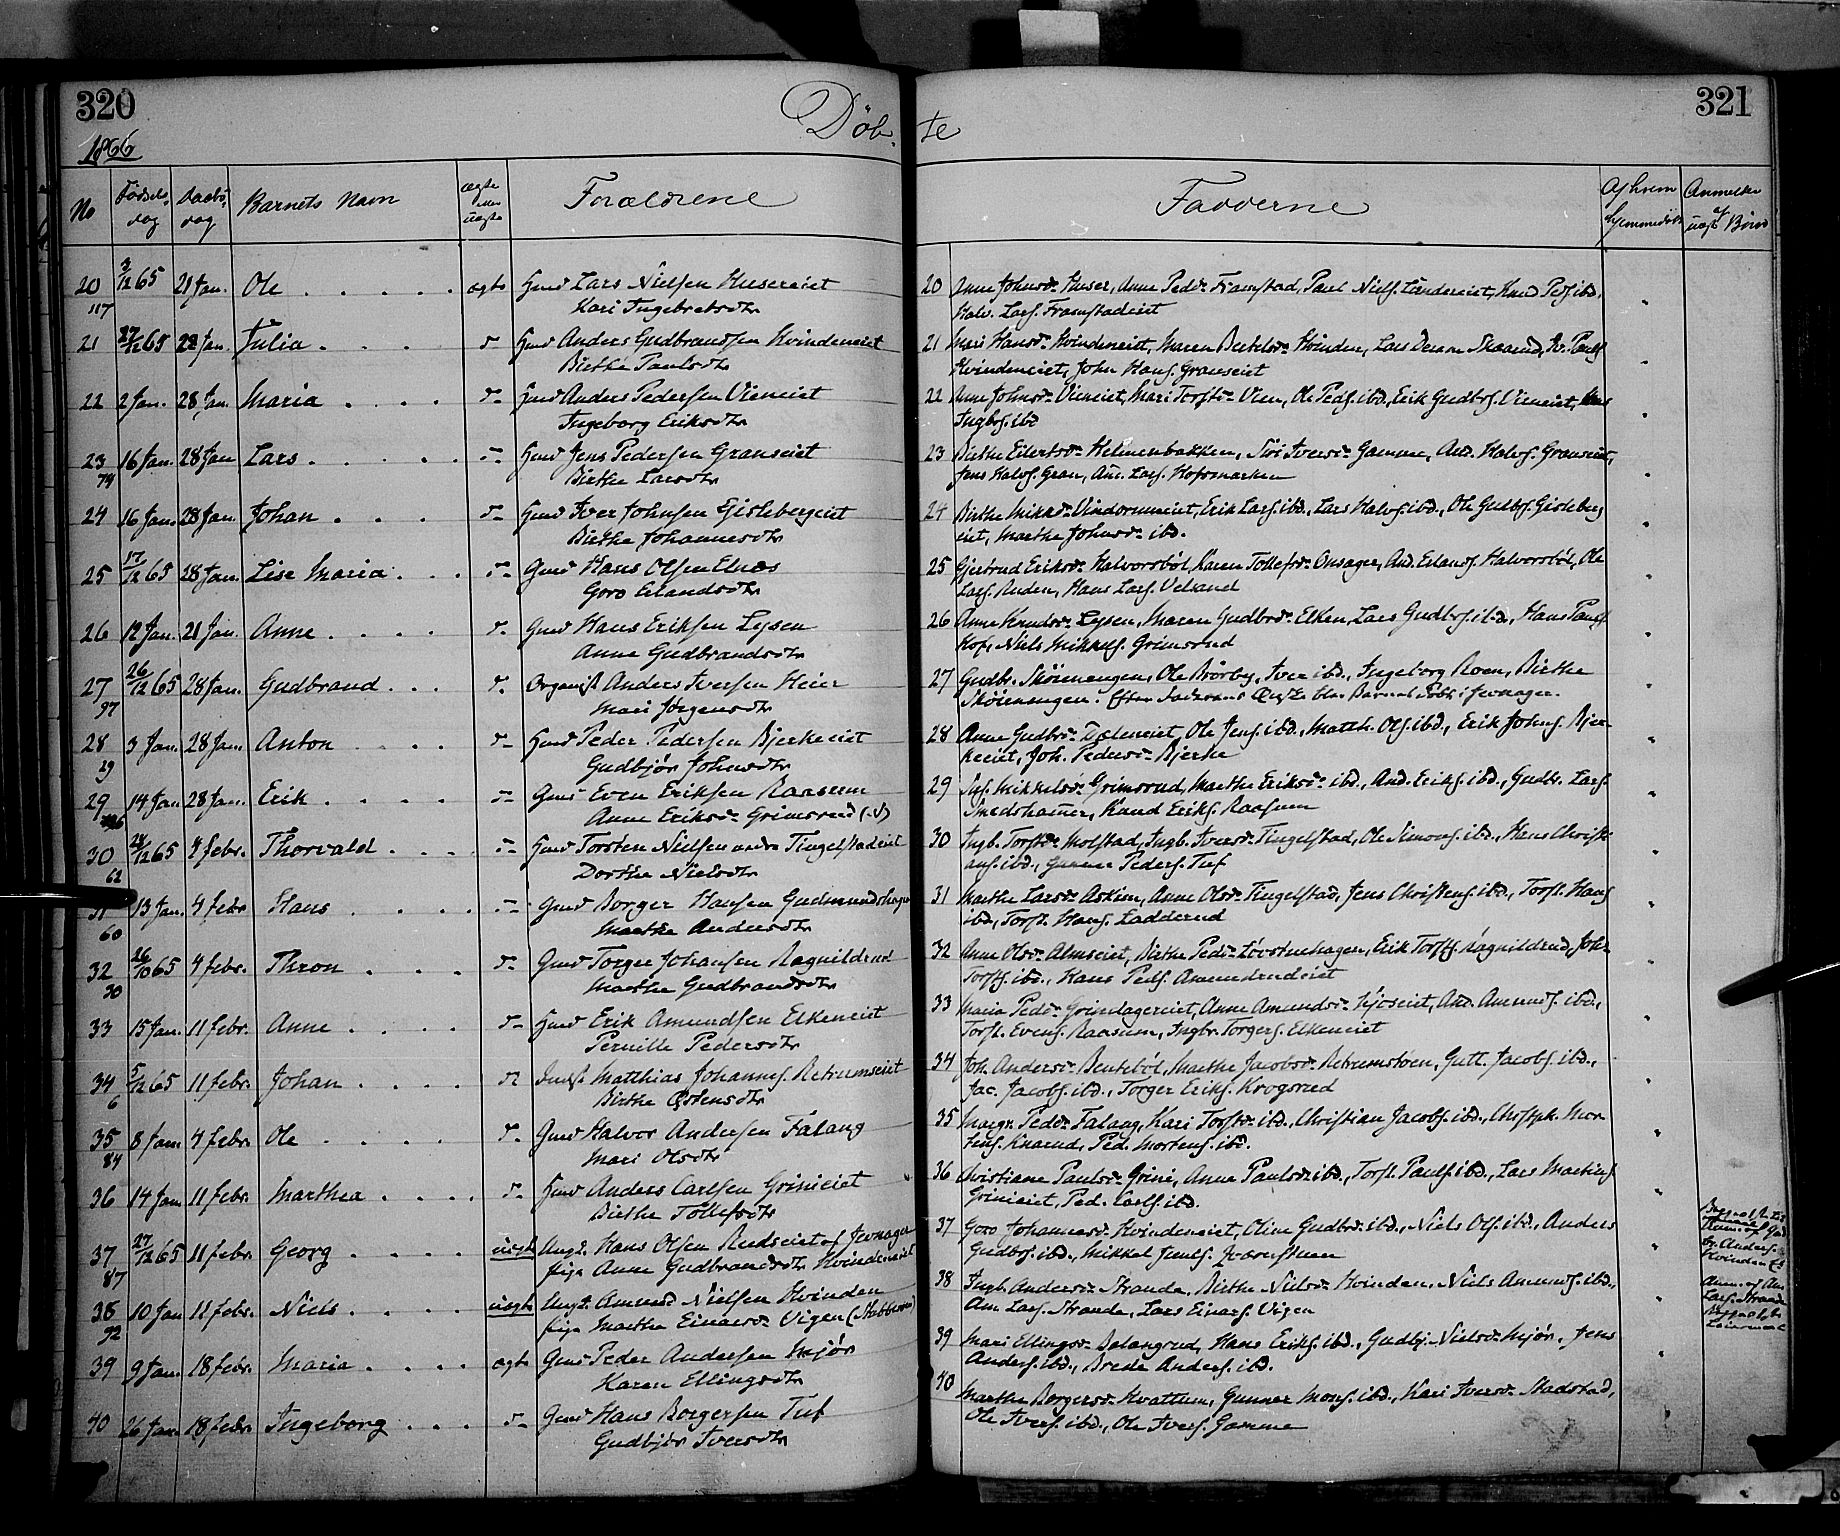 320
Døb-
1866
No Fødsels dag Daabs dag Barnets Navn ægte eller uægte Forældrene
20 3/12 65 21 Jan. Ole . . . . . ægte Hmd Lars Nielsen Husereiet
117 Kari Ingebretsdtr
21 27/12 65 22 Jan. Julia . . . . Hmd Anders Gudbrandsen Hvindeneiet
Birthe Paulsdtr
22 2 Jan. 28 Jan. Maria . . . . Hmd Anders Pedersen Vieneiet
Ingeborg Eriksdtr
23 16 Jan. 28 Jan Lars . . . . . Hmd Jens Pedersen Granseiet
74 Birthe Larsdtr
24 16 Jan. 28 Jan. Johan . . . Hmd Iver Johnsen Gislebergeiet
Birthe Johannesdtr
25 17/12 65 28 Jan. Lise Maria . . . Gmd Hans Olsen Elnæs
Goro Erlandsdtr
26 12 Jan. 21 Jan. Anne . . . . Gmd Hans Eriksen Lysen
Anne Gudbrandsdtr
27 26/12 65 28 Jan. Gudbrand . . . Organist Anders Iversen Heier
97 Mari Jørgensdtr
28 3 Jan. 28 Jan. Anton . . . . Hmd Peder Pedersen Bjerkeeiet
29 Gudbjør Johnsdtr
29 14 Jan 28 Jan. Erik . . . . Gmd Even Eriksen Raasum
Anne Eriksdr Grimsrud
30 24/12 65 4 febr. Thorvald . . . . Hmd Torsten Nielsen nedre Tingelstadeiet
62 Dorthe Nielsdtr
31 13 Jan. 4 febr Hans . . . . Gmd Borger Hansen Gudmundshagen
60 Marthe Andersdtr
32 26/10 65 4 febr. Thron . . . Gmd Torger Johansen Ragnildrud
30 Marthe Gudbrandsdtr
33 15 Jan. 11 febr. Anne . . . . Hmd Erik Amundsen Elkeneiet
Pernille Pedersdtr
34 5/12 65 11 febr. Johan . . . . Inds. Matthias Johannes. Retrumseiet
6 Birthe Østensdtr
35 8 Jan. 4 febr. Ole . . . . Gmd Halvor Andersen Falang
84 Mari Olsdtr
36 14 Jan 11 febr. Marthea . . . . Hmd Anders Carlsen Grinieiet
Birthe Tollefsdtr
37 27/12 65 11 febr. Georg . . . . uægte Ungk. Hans Olsen Rudseiet af Jevnager
87 pige Anne Gudbrandsdtr Hvindeneiet
38 10 Jan 11 febr. Niels . . . . uægte Ungk. Amund Nielsen Hvinden
92 pige Marthe Einarsdr Vigen
39 9 Jan. 18 febr. Maria . . . . ægte Gmd Peder Andersen Mjør
Karen Ellingsdtr
40 26 Jan. 18 febr. Ingeborg . . . Gmd Hans Borgersen Tuf
Gudbjør Iversdtr
321
te
Fadderne Af hvem hjemmedøbt Anmelde af uægt. Børn
20 Anne Johnsdr Huser, Anne Pedr Framstad, Paul Niels. Lindeneiet, Knud Peds. ibd.,
Halv. Lars. Framstadeiet
21 Mari Hansdr Hvindeneiet, Maren Bertelsdr Hvinden, Lars Skaarud, Iv. Pauls.
Hvindeneiet, John Hans. Granseiet
22 Anne Johnsdr Vieneiet, Mari Torstdr Vien, Ole Peds. ibd., Erik Gudbrs. Vieneiet,
Ingbrs. ibd
23 Birthe Eilertsdr Helmenbakken, Siri Iversdr Gamme, And. Halvs. Granseiet,
Jens Halvs. Gran, And. Lars. Hofsmarken
24 Birthe Mikksdr Vindorumeiet, Erik Lars. ibd., Lars Halvs. ibd., Ole Gudbs. Gisleberg
eiet, Marthe Johnsdr ibd.
25 Gjertrud Eriksdr Halvorsbøl, Karen Tollefsdr Onsager, And. Erlands. Halvorsbøl, Ole
Lars. Anden, Hans Lars. Velsand
26 Anne Knudsdr Lysen, Maren Gudbrdr Elken, Lars Gudbrs. ibd., Hans Pauls.
Hof, Niels Mikkels. Grimsrud
27 Gudbr. Sköienengen, Ole Brörby, Iver ibd., Ingeborg Roen, Birthe
Sköienengen. Efter Faderens Ønske blev Barnet døbt i Jevnager.
28 Anne Gudbrdr Dæleneiet, Ole Jens. ibd., Matth. Ols. ibd., Erik Johns. Bjer-
keeiet, Joh. Pedersdr Bjerke
29 Mikkelsdr Grimsrud, Marthe Eriksdr ibd., And. Eriks. ibd., Gudbr. Lars.
Smedshammer, Knud Eriks. Raasum
30 Ingb. Torstdr Molstad, Ingb. Iversdr Tingelstad, Ole Simons. ibd., Hans Christi
ans. ibd., Gunner Peders. Tuf
31 Marthe Larsdr Askim, Anne Olsdr Tingelstad, Jens Christens. ibd., Torst. Hans
ibd., Torst. Hans. Ladderud
32 Anne Olsdr Almseiet, Birthe Pedr Løvstuehagen, Erik Torsts. Ragnildrud, Joh.
Torsts. ibd., Hans Peds. Amundrudeiet
33 Maria Pedr Grindagereiet, Anne Amundsdr Hjoseiet, And. Amunds. ibd.,
Torst. Evens. Raasum, Ingbr. Torgers. Elkeneiet
34 Joh. Andersdr Bentebøl, Marthe Jacobsdr Retrumstoen, Gutt. Jacobs. ibd.,
Jac. Jacobs. ibd., Torger Eriks. Krogsrud
35 Margr. Pedr Falang, Kari Torstdr ibd., Christian Jacobs. ibd., Christph. Mor-
tens. Knarud, Ped. Mortens. ibd.
36 Christiane Paulsdr Grini, Anne Paulsdr ibd., Torst. Pauls. ibd., Lars Martins.
Grinieiet, Ped. Carls. ibd.
37 Goro Johannesdr Hvindeneiet, Oline Gudbrdr ibd., Niels Ols. ibd., Anders
Gudbrs. ibd., Mikkel Jens. Kværnstuen
38 Ingb. Andersdr Stranda, Birthe Nielsdr Hvinden, Niels Amunds. ibd.,
Am. Lars. Strande, Lars Einars. Vigen
39 Mari Ellingsdr Belangrud, Hans Eriks. ibd., Gudbj. Nielsdr Mjør, Jens
Anders. ibd., Brede Anders. ibd.
40 Marthe Borgersdr Kvattum, Gunner Mons. ibd., Kari Iversdr Stadstad,
Ole Ivers. ibd., Ole Ivers. Gamme